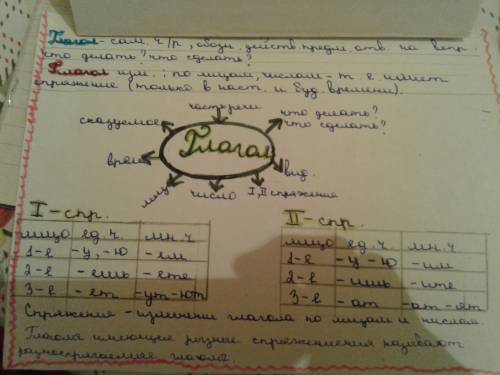 Глагол - сам. ч/р, обозн. действ предм. отв. на вопр.
что делать? что сделать?
Глагол изм. : по лицам, числам - т. е имеет
спряжение (только в наст. и буд. времени).
часть речи
что делать?
что сделать?
сказуемое
Глагол
время
вид.
лицо
число
I, II спряжения
I - спр.
лицо ед. ч. мн. ч
1-е -у, -ю -ем
2-е -ешь -ете
3-е -ет -ут -ют
II - спр.
лицо ед. ч. мн. ч
1-е -у -ю -им
2-е -ишь -ите
3-е -ат -ат -ят
Спряжение - изменении глагола по лицам и числам.
Глагола имеющие разные спряжениения называют
разноспрягаемая глагола